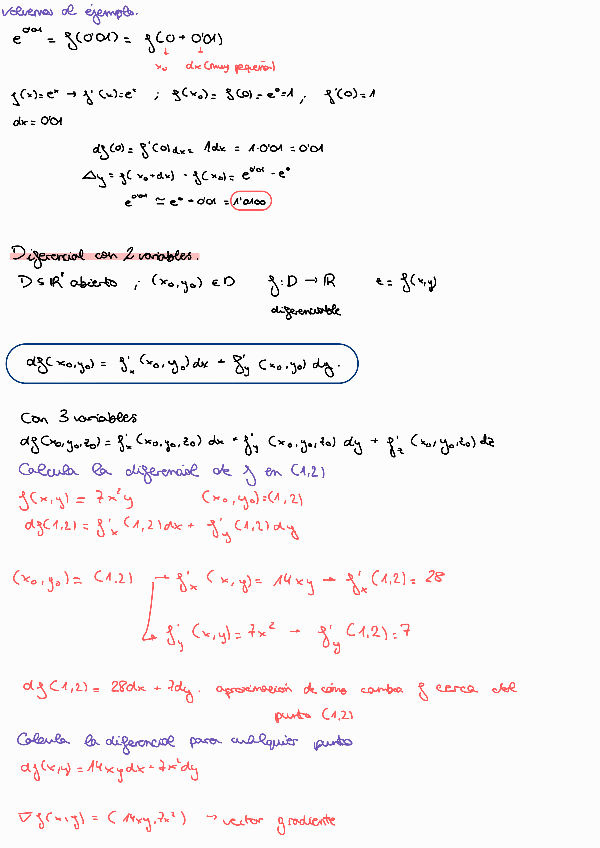 Volvemos al ejemplo.
e^0'01 = f(0'01) = f(0 + 0'01)
x₀ dx (muy pequeña)
f(x) = eˣ → f'(x) = eˣ ; f(x₀) = f(0) = e⁰ = 1 ; f'(0) = 1
dx = 0'01
df(0) = f'(0)dx = 1dx = 1·0'01 = 0'01
Δy = f(x₀+dx) - f(x₀) = e^0'01 - e⁰
e^0'01 ≃ e⁰ + 0'01 = 1'0100
Diferencial con 2 variables.
D ⊆ ℝ² abierto ; (x₀, y₀) ∈ D f: D → ℝ z = f(x,y)
diferenciable
df(x₀, y₀) = f'ₓ (x₀, y₀) dx + f'ᵧ (x₀, y₀) dy.
Con 3 variables
df(x₀, y₀, z₀) = f'ₓ (x₀, y₀, z₀) dx + f'ᵧ (x₀, y₀, z₀) dy + f'_z (x₀, y₀, z₀) dz
Calcula la diferencial de f en (1,2)
f(x,y) = 7x²y (x₀, y₀) = (1,2)
df(1,2) = f'ₓ (1,2) dx + f'ᵧ (1,2) dy
(x₀, y₀) = (1,2) → f'ₓ (x,y) = 14xy → f'ₓ (1,2) = 28
↳ f'ᵧ (x,y) = 7x² → f'ᵧ (1,2) = 7
df(1,2) = 28dx + 7dy. aproximación de cómo cambia f cerca del
punto (1,2)
Calcula la diferencial para cualquier punto
df(x,y) = 14xydx + 7x²dy
∇f(x,y) = (14xy, 7x²) → vector gradiente